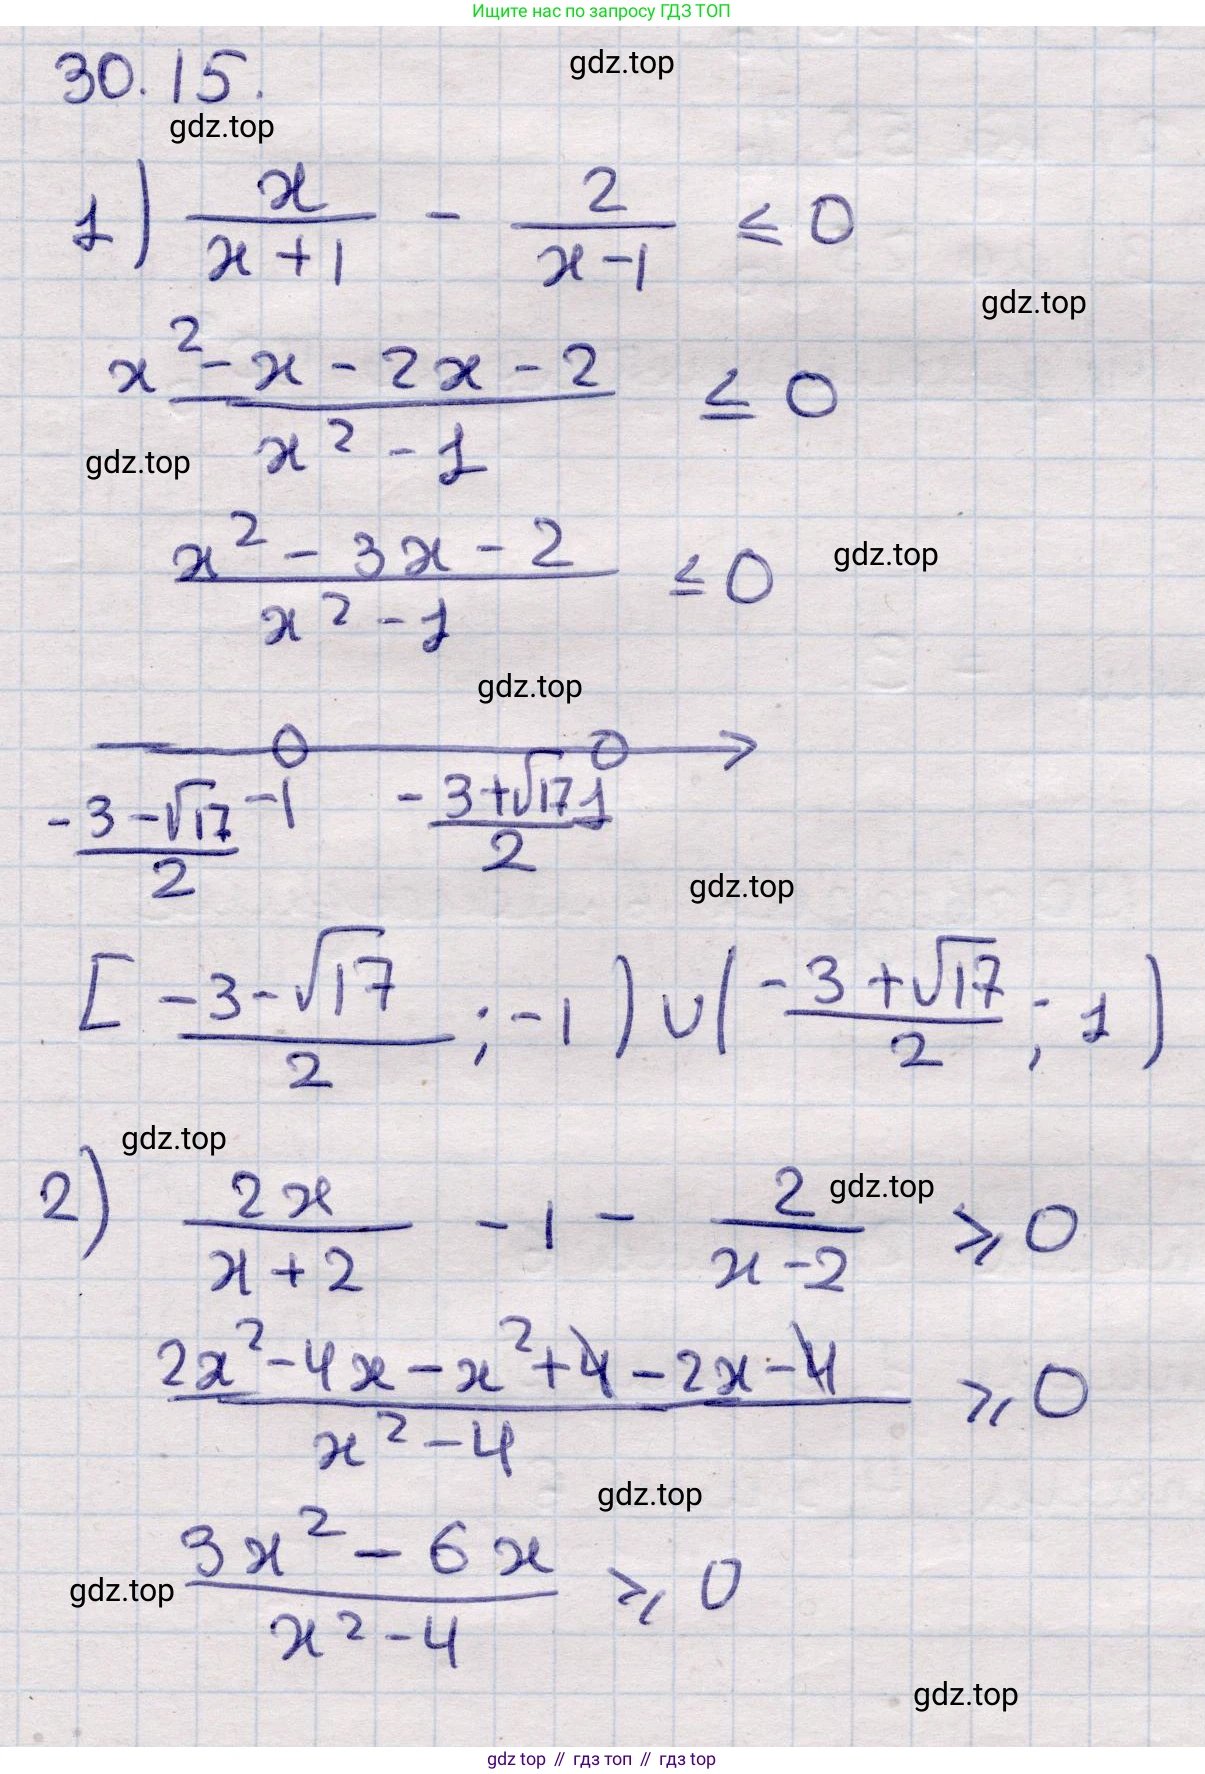 Ищите нас по запросу ГДЗ ТОП
30.15.
gdz.top
gdz.top
1) x/(x+1) - 2/(x-1) ≤ 0
gdz.top
(x² - x - 2x - 2)/(x² - 1) ≤ 0
gdz.top
(x² - 3x - 2)/(x² - 1) ≤ 0
gdz.top
gdz.top
(-3-√17)/2 -1 (-3+√17)/2 1
gdz.top
[(-3-√17)/2; -1) ∪ ((-3+√17)/2; 1)
gdz.top
2) 2x/(x+2) - 1 - 2/(x-2) ⩾ 0
gdz.top
(2x² - 4x - x² + 4 - 2x - 4)/(x² - 4) ⩾ 0
gdz.top
(3x² - 6x)/(x² - 4) ⩾ 0
gdz.top
gdz.top
gdz top // гдз топ // gdz.top